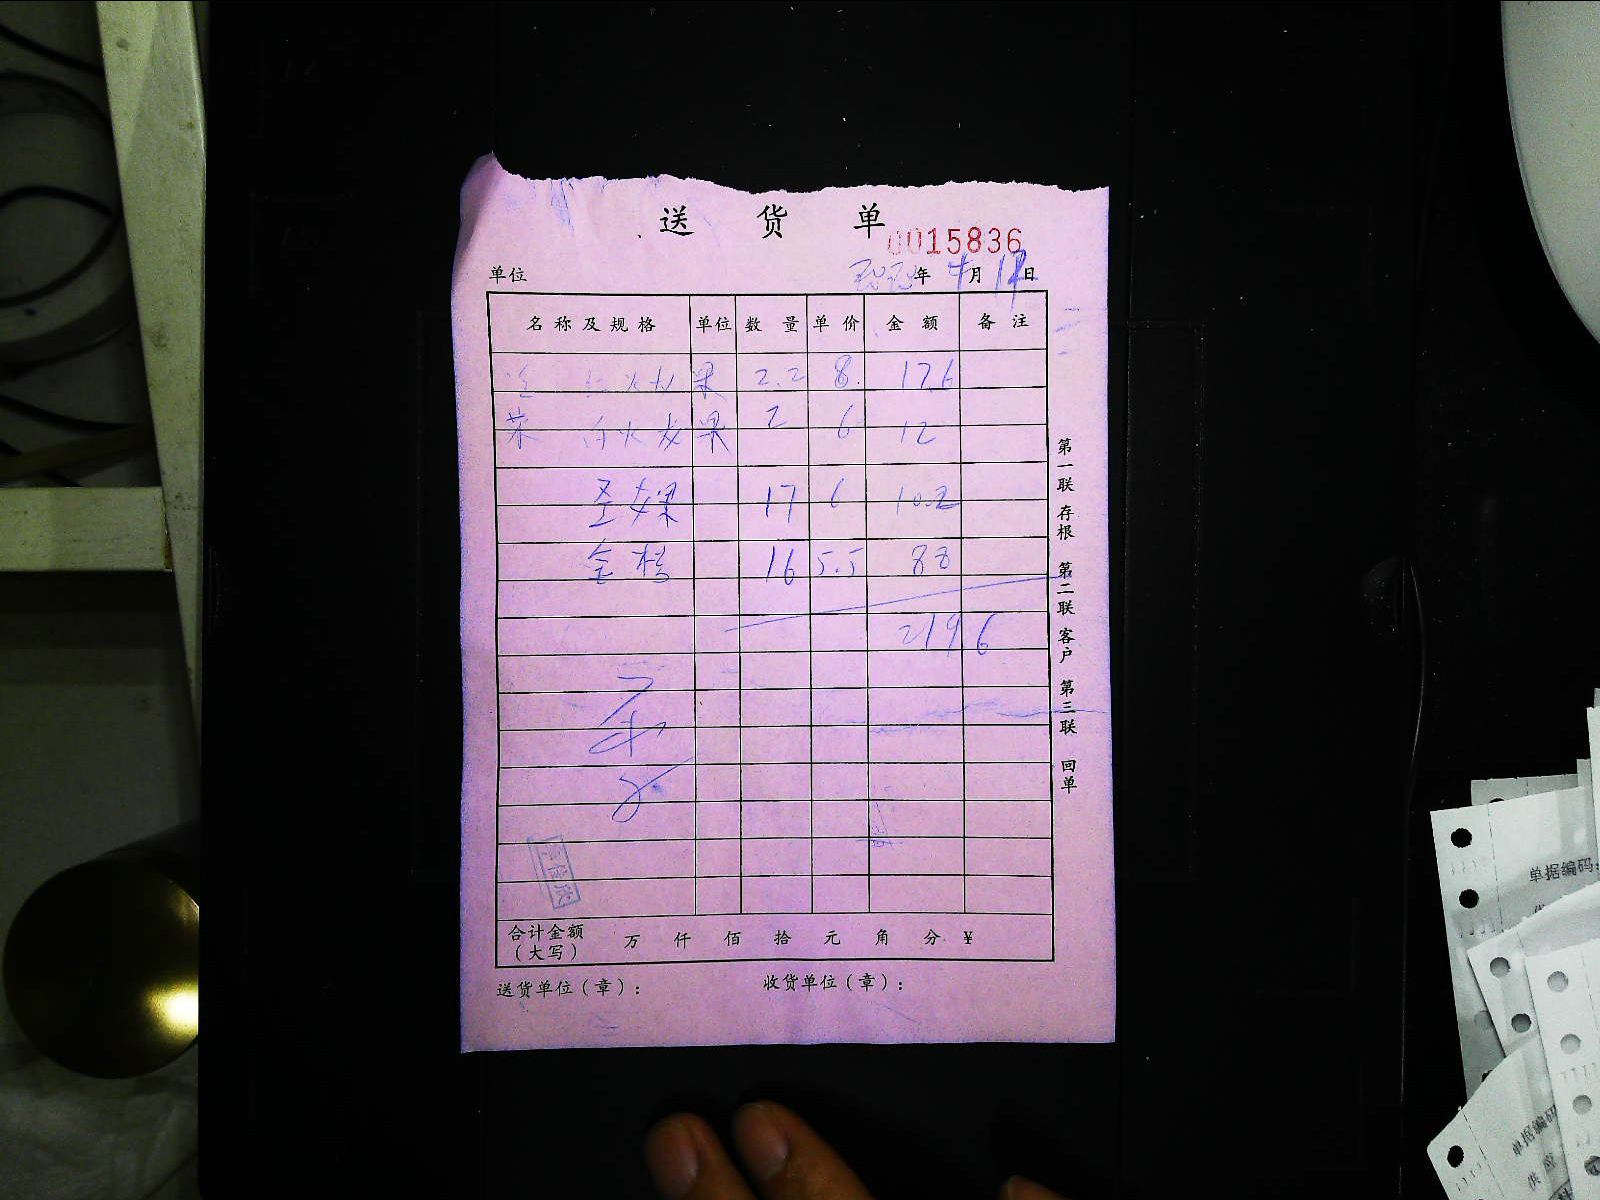 送 货 单
0015836
单位 年 月 日
名称及规格 单位 数量 单价 金额 备注
红火龙果 2.2 8. 17.6
白火龙果 2 6 12
圣女果 17 6 102
金桔 16 5.5 88
219.6
合计金额（大写） 万 仟 佰 拾 元 角 分 ¥
送货单位（章）： 收货单位（章）：
第一联 存根 第二联 客户 第三联 回单
单据编码:
单据编码